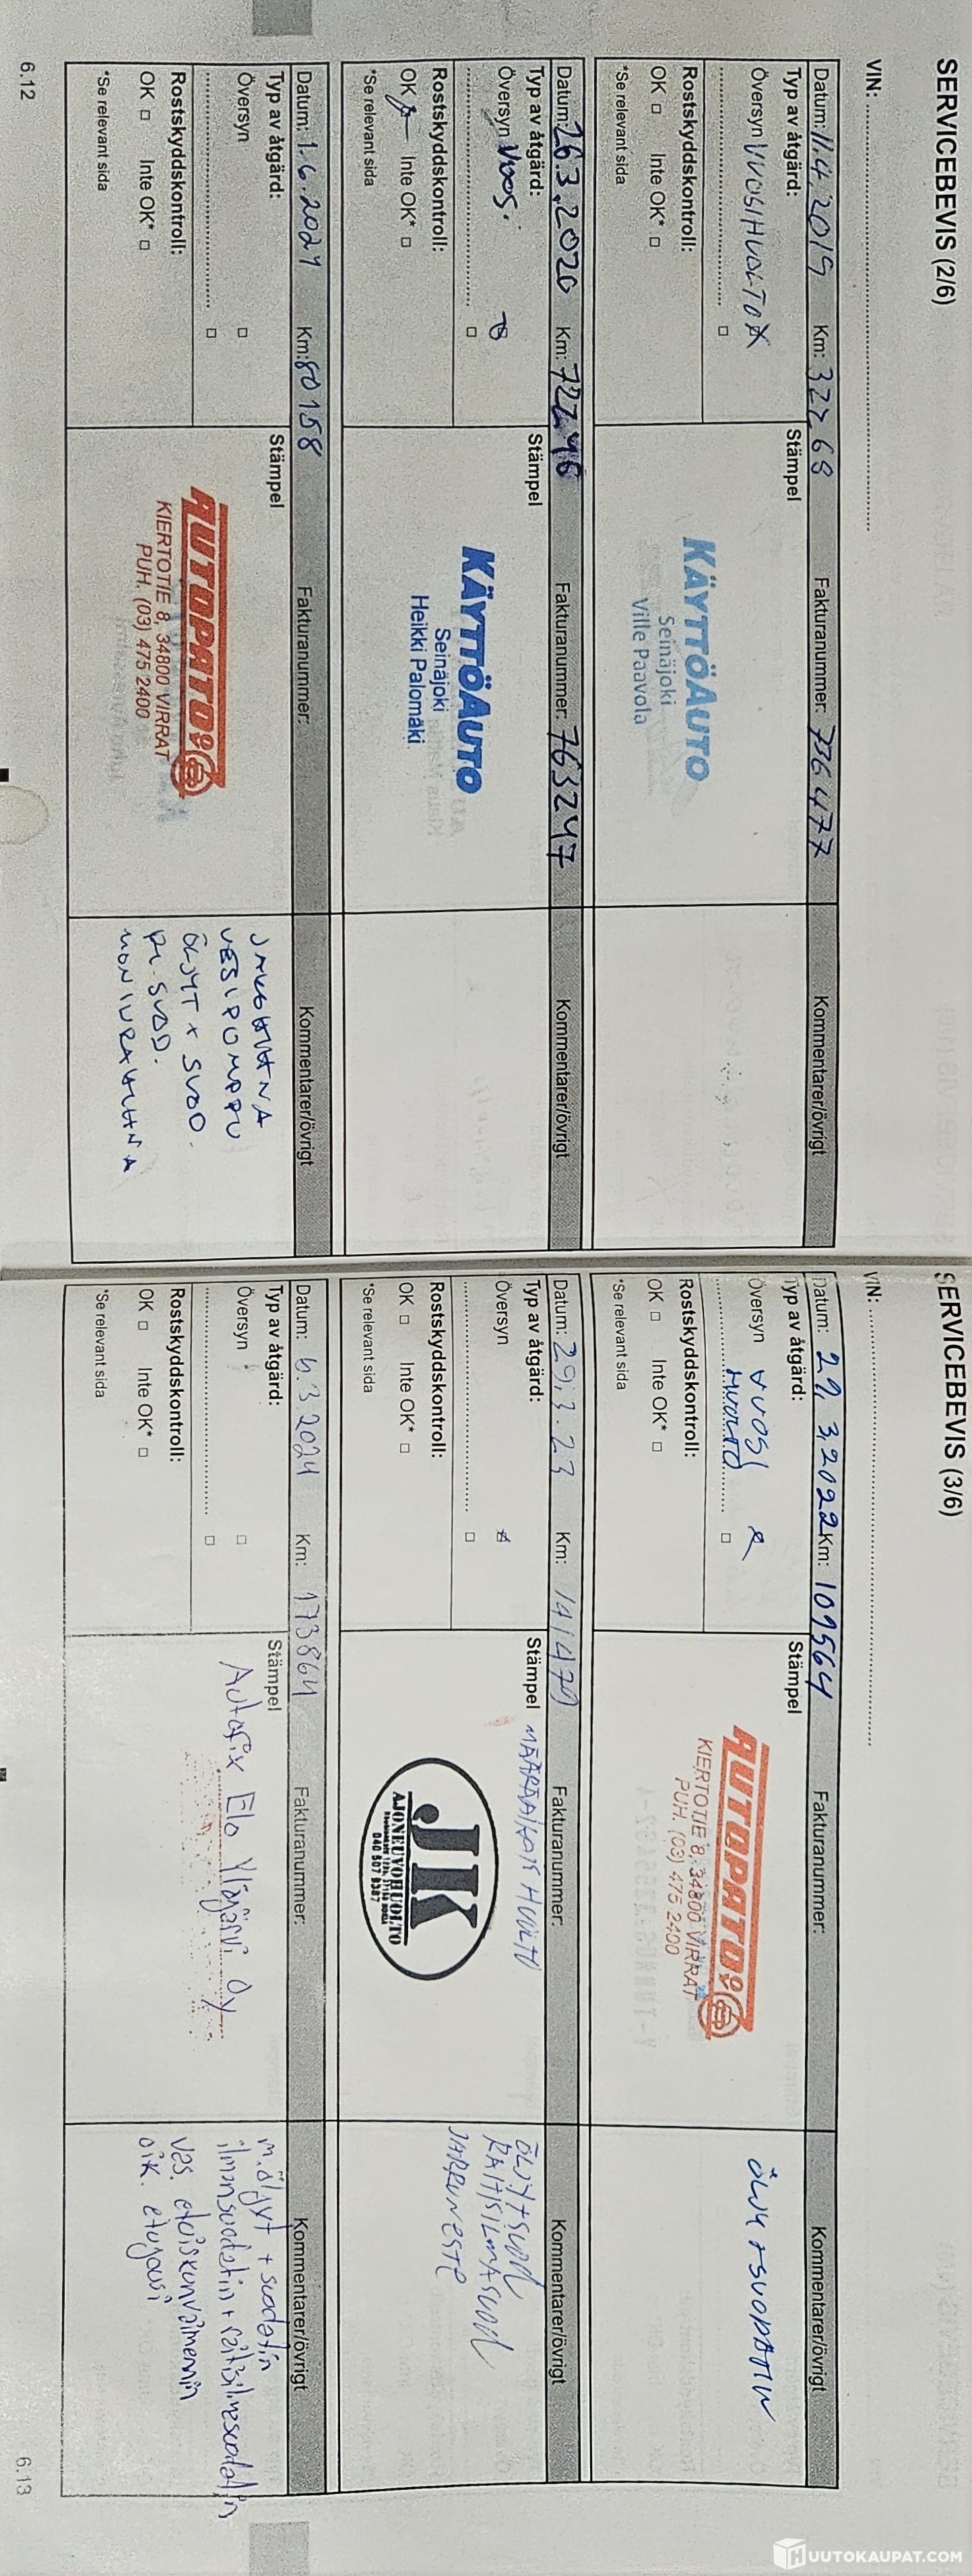 SERVICEBEVIS (2/6)
VIN:
Datum: 11.4.2019 Km: 32268 Fakturanummer: 736477 Kommentarer/övrigt
Typ av åtgärd: Stämpel
Översyn VUOSIHUOLTO
KÄYTTÖAUTO
Seinäjoki
Ville Paavola
Rostskyddskontroll:
OK Inte OK*
*Se relevant sida
Datum: 26.3.2020 Km: 72246 Fakturanummer: 763247 Kommentarer/övrigt
Typ av åtgärd: Stämpel
Översyn Vuos.
KÄYTTÖAUTO
Seinäjoki
Heikki Palomäki
Rostskyddskontroll:
OK Inte OK*
*Se relevant sida
Datum: 1.6.2021 Km: 80158 Fakturanummer: Kommentarer/övrigt
Typ av åtgärd: Stämpel
Översyn
AUTOPATO
KIERTOTIE 8, 34800 VIRRAT
PUH. (03) 475 2400
JAKOHIHNA
VESIPUMPPU
ÖLJYT + SUOD.
RI. SUOD.
MONIURAHIHNA
Rostskyddskontroll:
OK Inte OK*
*Se relevant sida
6.12
SERVICEBEVIS (3/6)
VIN:
Datum: 29.3.2022 Km: 109564 Fakturanummer: Kommentarer/övrigt
Typ av åtgärd: Stämpel
Översyn VUOSI
HUOLTO
AUTOPATO
KIERTOTIE 8, 34800 VIRRAT
PUH. (03) 475 2400
ÖLJY + SUODATIN
Rostskyddskontroll:
OK Inte OK*
*Se relevant sida
Datum: 29.3.23 Km: 141479 Fakturanummer: Kommentarer/övrigt
Typ av åtgärd: Stämpel MÄÄRÄAIKAIS HUOLTO
Översyn
JK
AJONEUVOHUOLTO
040 507 9387
ÖLJYT+SUOD
RAITISILMASUOD
JARRUNESTE
Rostskyddskontroll:
OK Inte OK*
*Se relevant sida
Datum: 6.3.2024 Km: 173864 Fakturanummer: Kommentarer/övrigt
Typ av åtgärd: Stämpel
Översyn
Autofix Elo Ylöjärvi Oy
m.öljyt + suodatin
ilmansuodatin + raitisilmasuodatin
vas. etuiskunvaimennin
oik. etujousi
Rostskyddskontroll:
OK Inte OK*
*Se relevant sida
6.13
HUUTOKAUPAT.COM